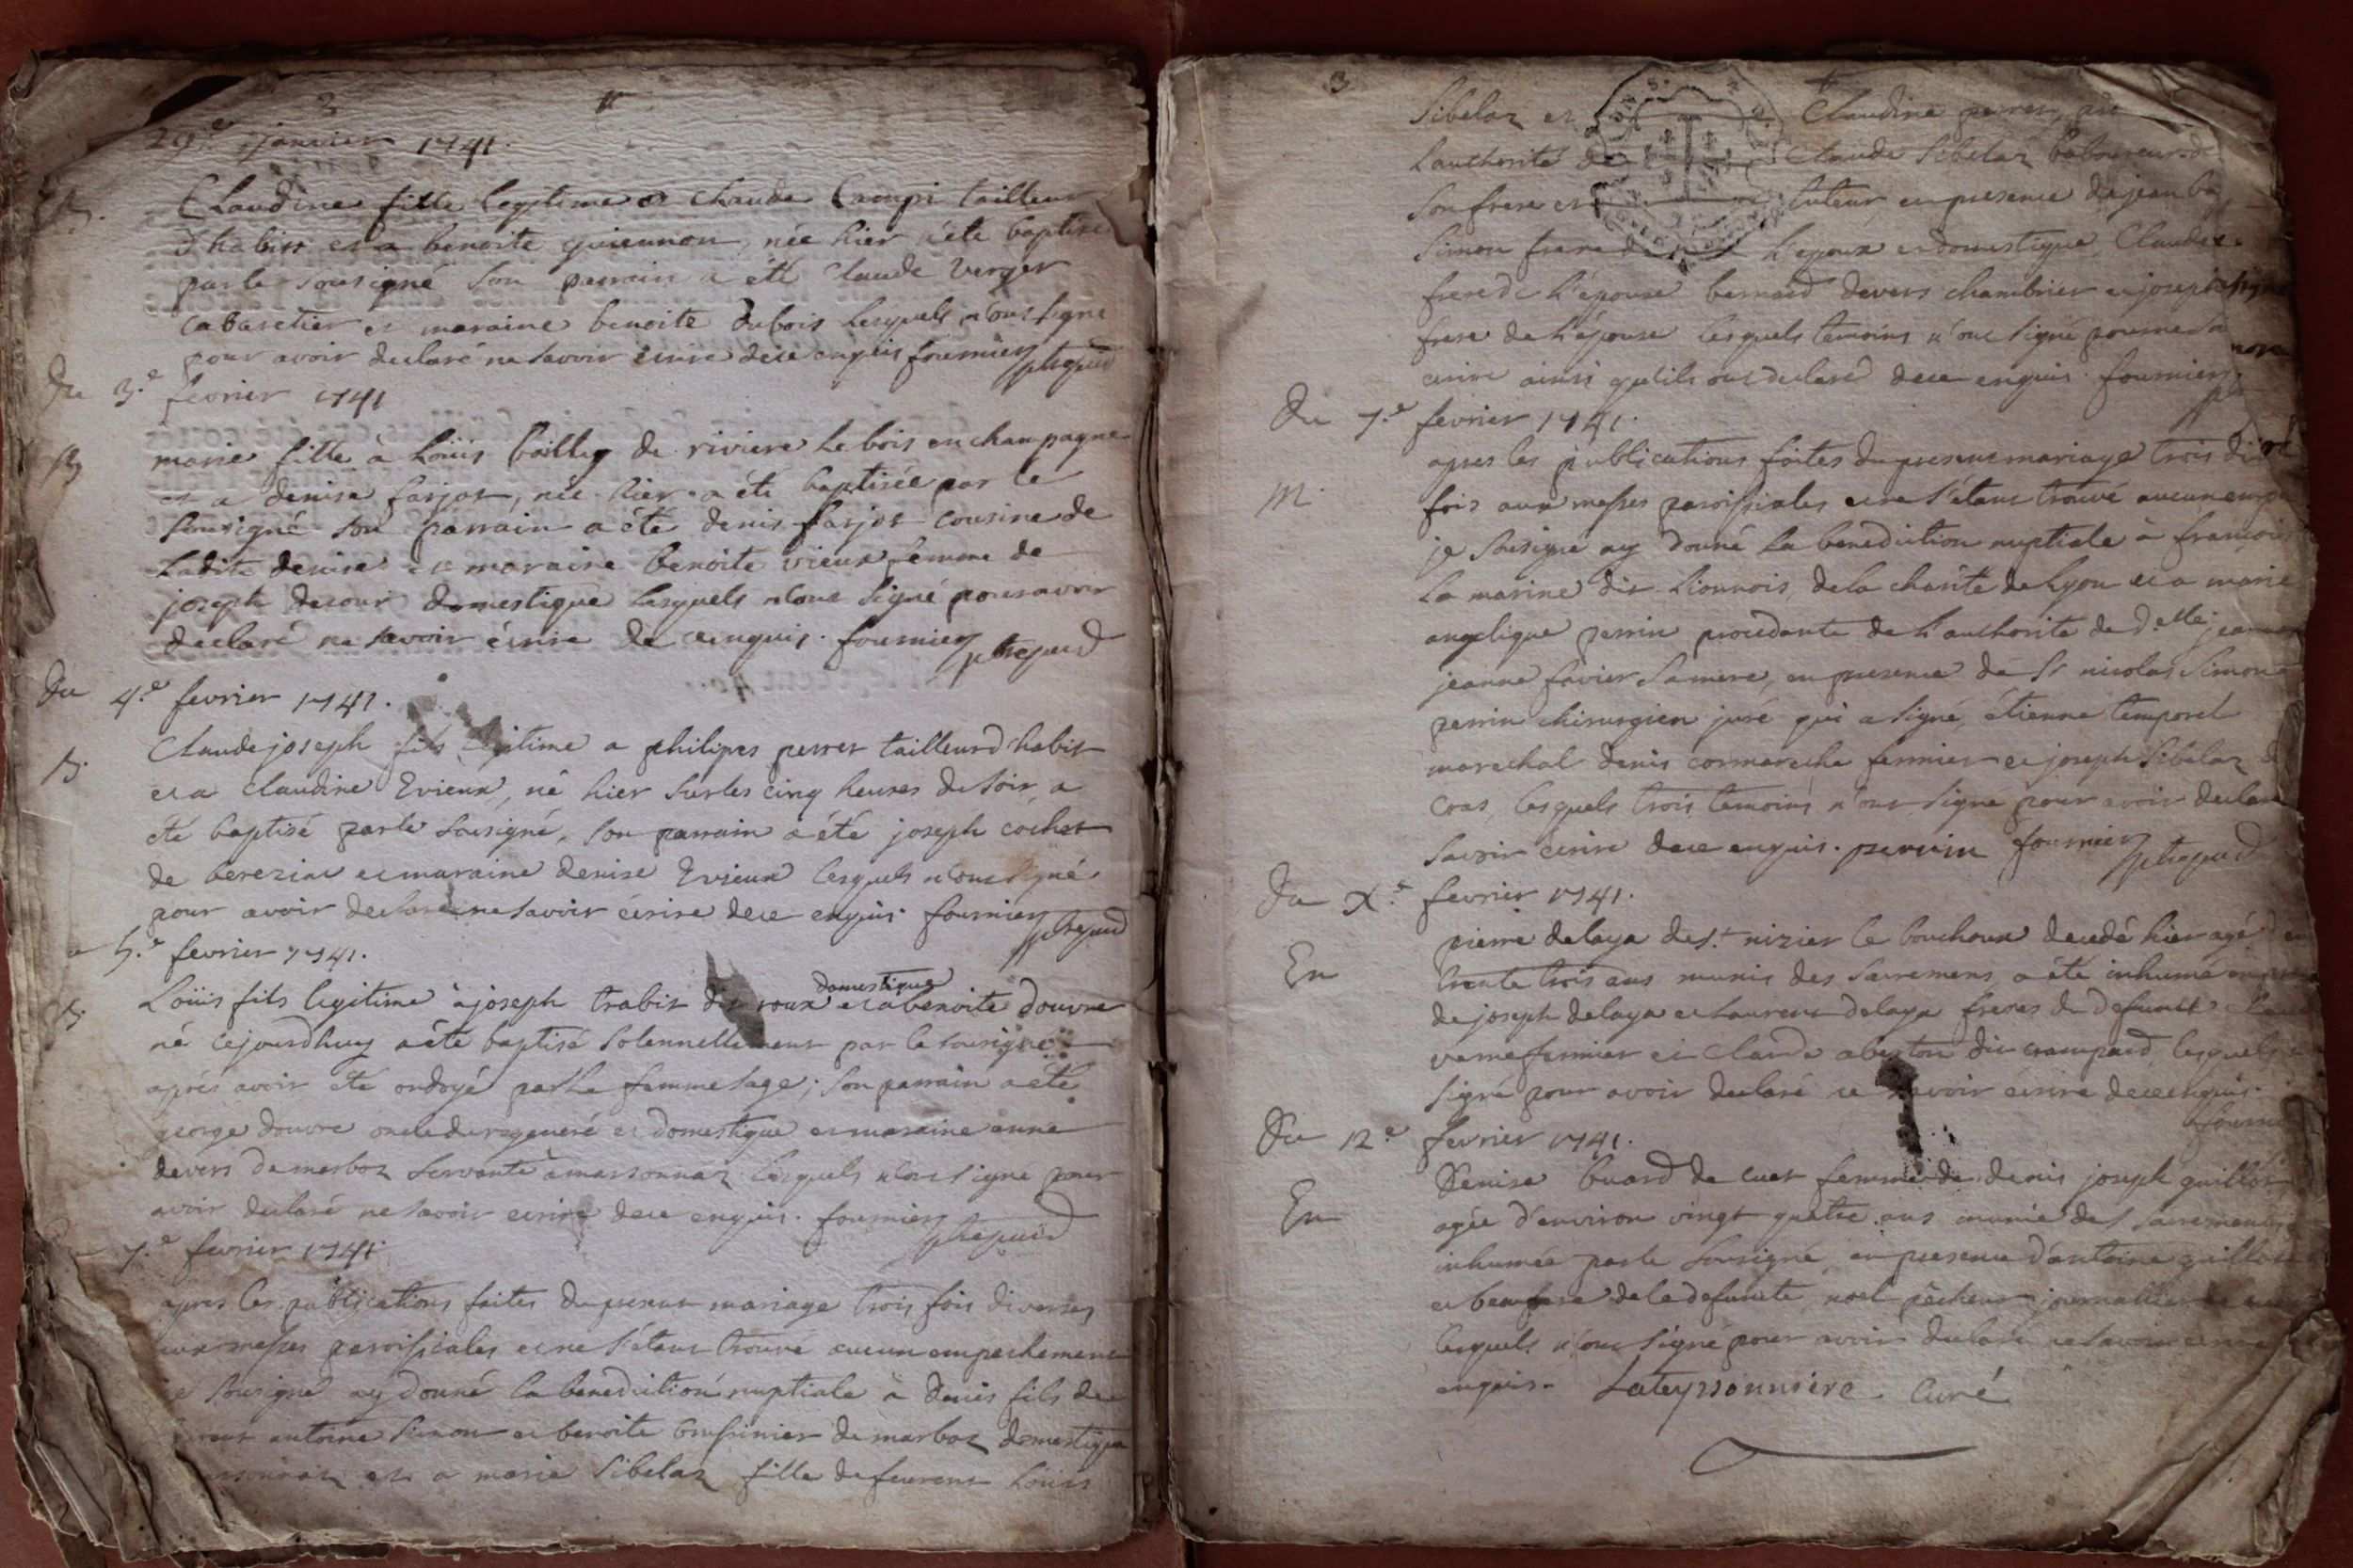 3
29.e janvier 1741.
B. Claudine fille legitime a Claude Compi tailleur
d'habits et a benoite guiennon, née hier a été baptisée
par le sousigné son parrain a été Claude Verger
cabaretier et maraine benoite dubois lesquels n'ont signé
pour avoir declaré ne savoir écrire de ce enquis fournier
du 3.e fevrier 1741
B marie fille à Loüis bailly de riviere le bois en champagne
et a denise farjot, née hier a été baptisée par le
sousigné son parrain a été denis farjot cousin de
ladite denise et maraine benoite vieux femme de
joseph decour domestique lesquels n'ont signé pour avoir
declaré ne savoir écrire de ce enquis. fournier
du 4.e fevrier 1741.
B. Claude joseph fils legitime a philipes perret tailleur d'habit
et a claudine Evieux, né hier sur les cinq heures du soir, a
été baptisé par le sousigné, son parrain a été joseph cochet
de bereziat et maraine denise Evieux lesquels n'ont signé
pour avoir declaré ne savoir écrire de ce enquis. fournier
5.e fevrier 1741.
domestique
B. Loüis fils legitime à joseph trabit dit roux et a benoite douvre
né cejourdhuy a été baptisé solennellement par le sousigné
après avoir été ondoyé par la femme sage; son parrain a été
george douvre oncle du regeneré et domestique et maraine anne
devers de marboz servante à marsonnaz lesquels n'ont signé pour
avoir declaré ne savoir ecrire de ce enquis. fournier
7.e fevrier 1741
apres les publications faites du present mariage trois fois diverses
aux messes paroissiales et ne s'étant trouvé aucun empechement
je sousigné ay donné la benediction nuptiale à denis fils de
antoine Simon et benoite de marboz domestique
et a marie Sibelaz fille de feurent Loüis
3
Sibelaz et Claudine perret,
l'authorité de Claude Sibelaz laboureur
son frere et tuteur en presence de jean
Simon frere de l'epoux et domestique Claude
frere de l'épouse bernard devers chambrier et joseph
frere de l'épouse lesquels temoins n'ont signé pour ne
ecrire ainsi qu'ils ont declaré de ce enquis. fournier
du 7.e fevrier 1741.
M. apres les publications faites du present mariage trois
fois aux messes paroissiales et ne s'étant trouvé aucun
je sousigné ay donné la benediction nuptiale à françois
la marine dit Lionnois, de la charité de Lyon et a marie
angelique perrin procedante de l'authorité de d.elle
jeanne favier sa mere, en presence de Sr nicolas Simon
perrin chirurgien juré qui a signé, étienne temporel
marechal denis cormareche fermier et joseph Sibelaz
lesquels trois temoins n'ont signé pour avoir declaré
savoir écrire de ce enquis. perrin fournier
du X.e fevrier 1741.
En pierre delaya de s.t nizier le bouchoux decedé hier agé
trente trois ans munis des sacremens a été inhumé
de joseph delaya et laurent delaya freres du defunct
fermier et Claude dit lesquels
signé pour avoir declaré ne savoir écrire de ce enquis.
du 12.e fevrier 1741.
En Denise buard de cuet femme de denis joseph guillot
agée d'environ vingt quatre ans munie des sacremens
inhumée par le sousigné, en presence d'antoine guillot
et beaufrere de la defuncte, noel pêcheur journallier
lesquels n'ont signé pour avoir declaré ne savoir ecrire
enquis. Lateyssonniere Curé